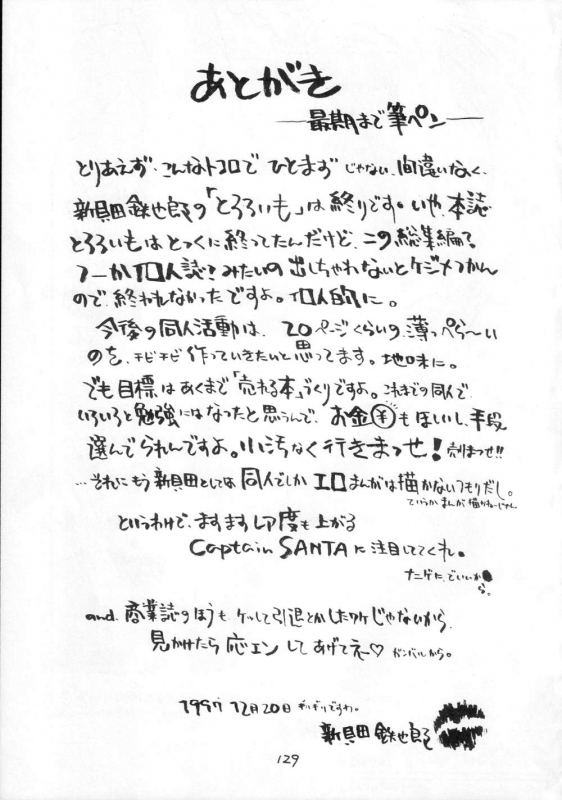 あとがき
―最期まで筆ペン―
とりあえず、こんなトコロで ひとまず じゃない、間違いなく、
新貝田鉄也郎の「とろろいも」は終りです。いや、本誌
とろろいもはとっくに終ってたんだけど、この総集編る
つーか個人誌?みたいの出しちゃわないとケジメつかん
ので、終われなかったですよ。個人的に。
今後の同人活動は、20ページくらいの、薄っぺら〜い
のを、チビチビ作っていきたいと思ってます。地味に。
でも目標はあくまで「売れる本」づくりですよ。これまでの同人で、
いろいろと勉強にはなったと思うんで、お金¥もほしいし、手段
選んでられんですよ。小汚なく行きまっせ!売りまっせ!!
…それにもう新貝田としては同人でしかエロまんがは描かないつもりだし。
ていうかまんが描かねーじゃん
というわけで、ますますレア度も上がる
Captain SANTAに注目しててくれ。
ナニゲに、でいいか
ら。
and. 商業誌のほうも ケッして引退とかしたワケじゃないから、
見かけたら応エンしてあげてネー♡ ガンバルから。
1997 12月20日 ギリギリですわ。
新貝田 鉄也郎
129